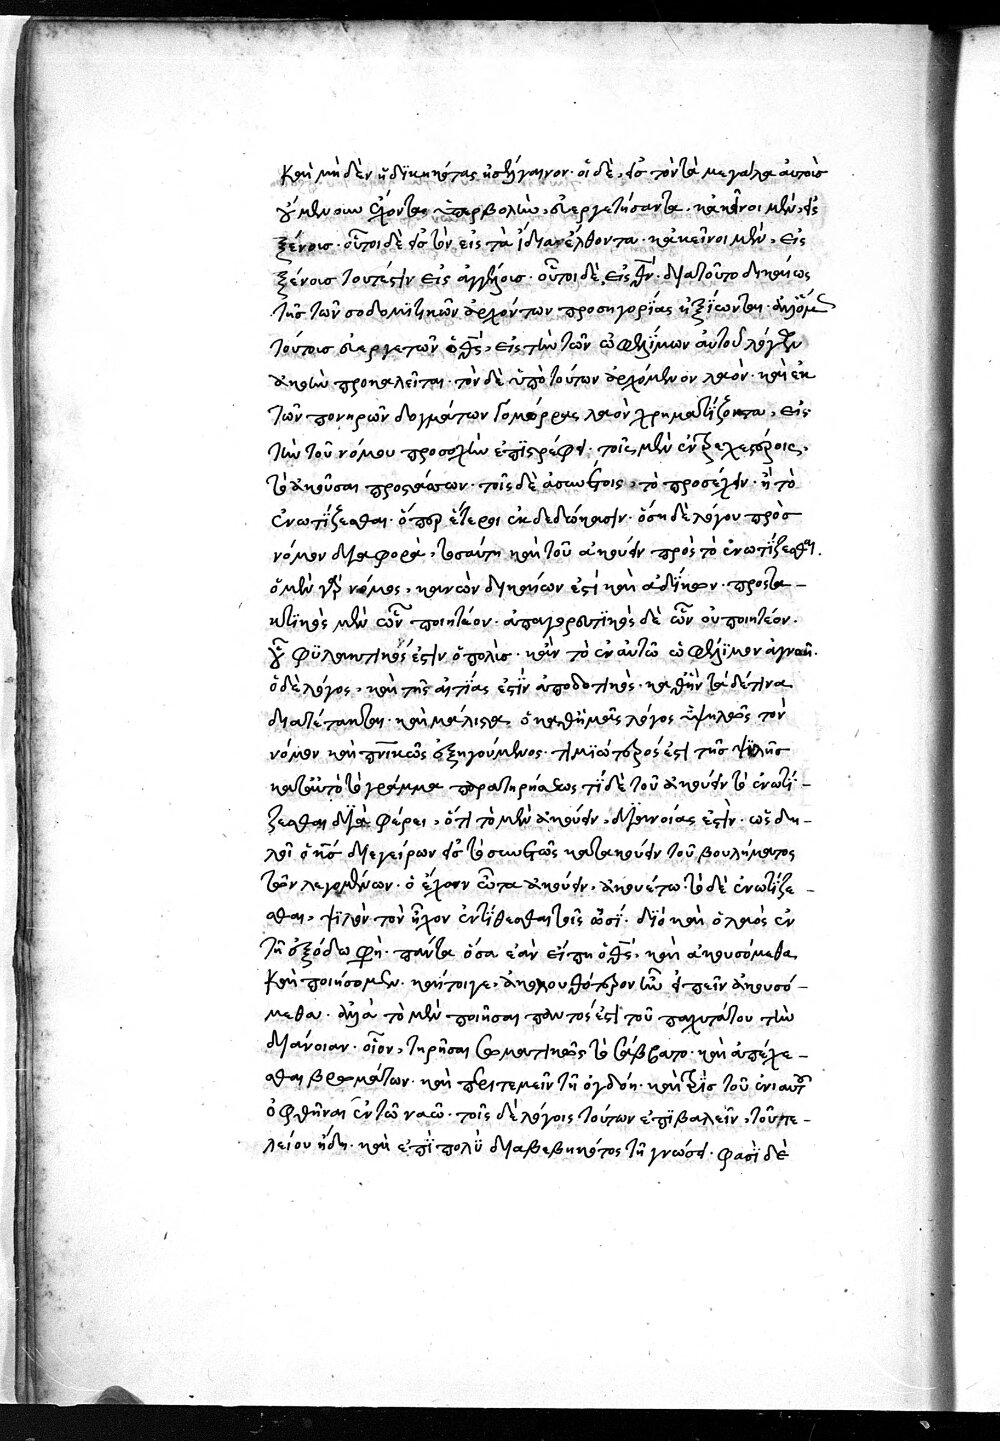 καὶ μηδὲν ἠδικηκότας ἠσέλγαινον· οἱ δὲ, εἰς τὸν τὰ μεγάλα αὐτοὺς
οὐ μὲν οὖν ἔχοντας ὑπερβολὴν, εὐεργετήσαντα· κἀκεῖνοι μὲν, εἰς
ξένους· οὗτοι δὲ εἰς τὸν εἰς τὰ ἴδια ἐλθόντα· κἀκεῖνοι μὲν, εἰς
ξένους τουτέστιν εἰς ἀγγέλους· οὗτοι δὲ, εἰς θν· διατοῦτο δικαίως
τῆς τῶν σοδομϊτικῶν ἀρχόντων προσηγορίας ἠξίωνται·
τούτοις εὐεργετῶν ὁ θς, εἰς τὴν τῶν ὠφελίμων αὐτοῦ λόγων
ἀκοὴν προκαλεῖται· τὸν δὲ ὑπὸ τούτων ἀρχόμενον λαὸν· καὶ ἐκ
τῶν πονηρῶν δογμάτων Γομόρρας λαὸν χρηματίζοντα, εἰς
τὴν τοῦ νόμου προσοχὴν ἐπϊστρέφει· τοῖς μὲν ἐντρεχεστέροις,
τὸ ἀκοῦσαι προστάττων· τοῖς δὲ ἀσυνέτοις, τὸ προσέχειν· ἢ τὸ
ἐνωτίζεσθαι· ὅπερ ἕτεροι ἐκδεδώκασιν· ὅση δὲ λόγου πρὸς
νόμον διαφορὰ, τοσαύτη καὶ τοῦ ἀκούειν πρὸς τὸ ἐνωτίζεσθαι.
ὁ μὲν γὰρ νόμος, κανὼν δικαίων ἐστὶ καὶ ἀδίκων· προστα-
κτϊκὸς μὲν ὧν ποιητέον· ἀπαγορευτϊκὸς δὲ ὧν οὐ ποιητέον·
οὗ φϋλακτικός ἐστιν ὁ πολὺς· κἂν τὸ ἐν αὐτῶ ὠφέλιμον ἀγνοῆ·
ὁ δὲ λόγος, καὶ τῆς αἰτίας ἐστὶν ἀποδοτικὸς· καθ ἣν τὰ δέ τινα
διατέτακται· καὶ μάλιστα, ὁ καθ ἡμᾶς λόγος ὑψηλῶς τὸν
νόμον καὶ πνικῶς ἐξηγούμενος· τιμιώτερός ἐστι τῆς ψιλῆς
κατ αὐτὸ τὸ γράμμα παρατηρήσεως τί δὲ τοῦ ἀκούειν τὸ ἐνωτί-
ζεσθαι διὰ φέρει, ὅτι τὸ μὲν ἀκούειν, διανοίας ἐστὶν· ὡς δη-
λοῖ ὁ ις διεγείρων εἰς τὸ συνετῶς κατακούειν τοῦ βουλήματος
τῶν λεγομένων· ὁ ἔχων ὦτα ἀκούειν, ἀκουέτω· τὸ δὲ ἐνωτίζε-
σθαι, ψϊλὸν τὸν ἦχον ἐντίθεσθαι τοῖς ὠσί· διὸ καὶ ὁ λαὸς ἐν
τῆ ἐξόδω φη· πάντα ὅσα ἐὰν εἴπη ὁ θς, καὶ ἀκουσόμεθα
καὶ ποιήσομεν· καίτοιγε, ἀκολουθότερον ἦν εἰπεῖν ἀκουσό-
μεθα· ἀλλὰ τὸ μὲν ποιῆσαι παντός ἐστι τοῦ παχυτάτου τὴν
διάνοιαν· οἷον, τηρῆσαι σωματικῶς τὸ σάββατο· καὶ ἀπέχε-
σθαι βρωμάτων· καὶ περιτεμεῖν τῆ ὀγδόη· καὶ τρὶς τοῦ ἐνιαυτοῦ
ὀφθῆναι ἐν τῶ ναῶ· τοῖς δὲ λόγοις τούτων ἐπϊβαλεῖν, τοῦ τε-
λείου ἤδη· καὶ ἐπὶ πολὺ διαβεβηκότος τῆ γνώσει· φασὶ δὲ